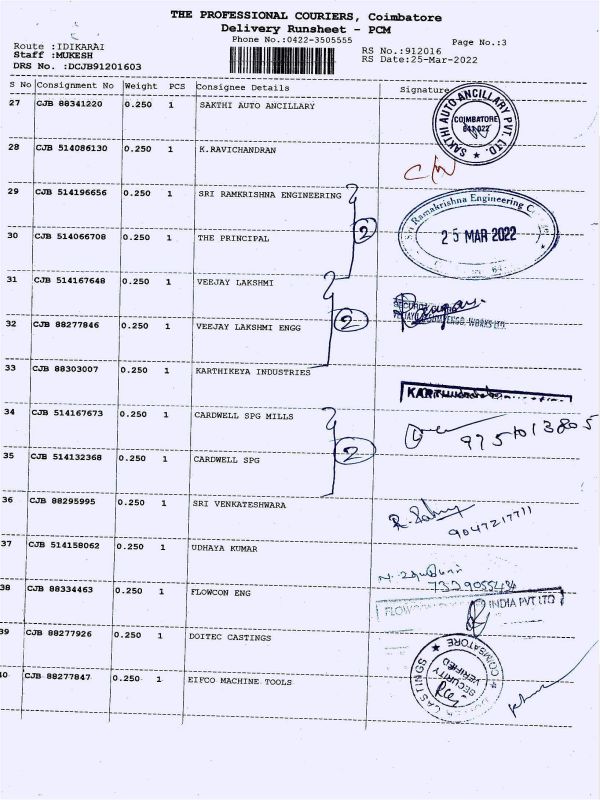 THE PROFESSIONAL COURIERS, Coimbatore
Delivery Runsheet - PCM
Phone No.:0422-3505555
Page No.:3
Route :IDIKARAI
Staff :MUKESH
DRS No. :DCJB91201603
RS No.:912016
RS Date:25-Mar-2022
S No Consignment No Weight PCS Consignee Details Signature
27 CJB 88341220 0.250 1 SAKTHI AUTO ANCILLARY
SAKTHI AUTO ANCILLARY PVT. LTD.
COIMBATORE
641 022
28 CJB 514086130 0.250 1 K.RAVICHANDRAN
29 CJB 514196656 0.250 1 SRI RAMKRISHNA ENGINEERING
Sri Ramakrishna Engineering
2
25 MAR 2022
30 CJB 514066708 0.250 1 THE PRINCIPAL
31 CJB 514167648 0.250 1 VEEJAY LAKSHMI
SECURITY
2
32 CJB 88277846 0.250 1 VEEJAY LAKSHMI ENGG
WORKS LTD.
33 CJB 88303007 0.250 1 KARTHIKEYA INDUSTRIES
34 CJB 514167673 0.250 1 CARDWELL SPG MILLS
9751013805
2
35 CJB 514132368 0.250 1 CARDWELL SPG
36 CJB 88295995 0.250 1 SRI VENKATESHWARA
9047217711
37 CJB 514158062 0.250 1 UDHAYA KUMAR
38 CJB 88334463 0.250 1 FLOWCON ENG
INDIA PVT LTD
39 CJB 88277926 0.250 1 DOITEC CASTINGS
COIMBATORE
SECURITY
VERIFIED
CASTINGS
40 CJB 88277847 0.250 1 EIFCO MACHINE TOOLS